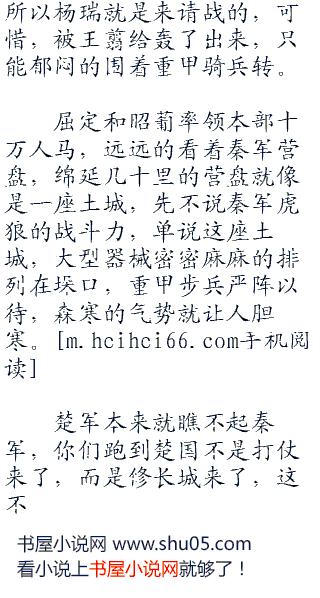 所以杨瑞就是来请战的，可
惜，被王翦给轰了出来，只
能郁闷的围着重甲骑兵转。
屈定和昭蔔率领本部十
万人马，远远的看着秦军营
盘，绵延几十里的营盘就像
是一座土城，先不说秦军虎
狼的战斗力，单说这座土
城，大型器械密密麻麻的排
列在垛口，重甲步兵严阵以
待，森寒的气势就让人胆
寒。[m.hcihci66.com手机阅
读]
楚军本来就瞧不起秦
军，你们跑到楚国不是打仗
来了，而是修长城来了，这
不
书屋小说网 www.shu05.com
看小说上书屋小说网就够了！